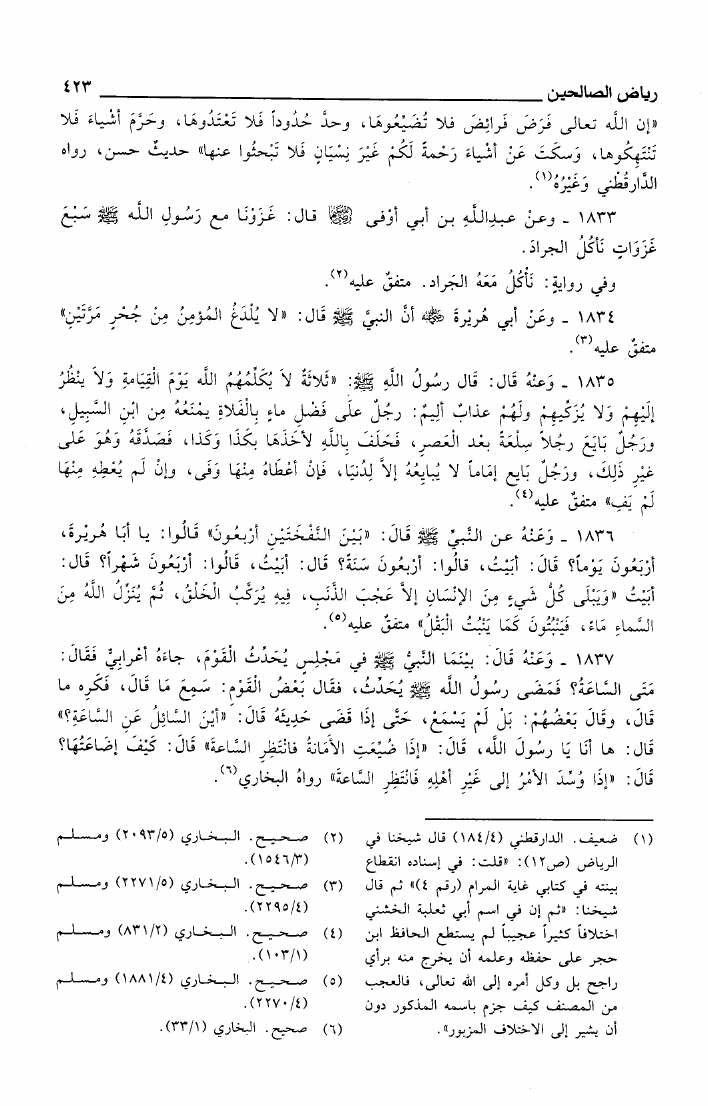 رياض الصالحين ٤٢٣
«إن اللَّه تعالى فَرَضَ فَرائِضَ فلا تُضَيِّعُوهَا، وحدَّ حُدُوداً فَلا تَعْتَدُوهَا، وحَرَّمَ أشْياءَ فَلا
تَنْتَهِكُوها، وَسكَتَ عَنْ أشْياءَ رَحْمةً لَكُمْ غَيْرَ نِسْيَانٍ فَلا تَبْحثُوا عنها» حديثٌ حسن، رواه
الدَّارقُطْني وَغَيْرُهُ(١).
١٨٣٣ ـ وعنْ عبدِاللَّهِ بن أبي أوْفى ﷺ قال: غَزَوْنَا مع رَسُولِ اللَّه ﷺ سَبْعَ
غَزَوَاتٍ نَأكُلُ الجرادَ.
وفي روايةٍ: نَأْكُلُ مَعَهُ الجَراد. متفقٌ عليه(٢).
١٨٣٤ ـ وعَنْ أبي هُريْرةَ رضي الله عنه أنَّ النبيَّ ﷺ قَال: «لا يُلْدَغُ المُؤمِنُ مِنْ جُحْرٍ مَرَّتَيْنِ»
متفقٌ عليه(٣).
١٨٣٥ ـ وَعنْهُ قَال: قَال رسُولُ اللَّهِ ﷺ: «ثَلاثَةٌ لاَ يُكَلِّمُهُمُ اللَّه يَوْمَ الْقِيَامةِ وَلاَ ينْظُرُ
إلَيْهِمْ وَلا يُزَكِّيهِمْ ولَهُمْ عذابٌ ألِيمٌ: رجُلٌ علَى فَضْلِ ماءٍ بِالْفَلاةِ يمْنَعُهُ مِن ابْنِ السَّبِيلِ،
ورَجُلٌ بَايَع رجُلاً سِلْعَةً بعْد الْعَصرِ، فَحَلَفَ بِاللَّهِ لأخَذَهَا بكَذَا وَكَذا، فَصَدَّقَهُ وَهُوَ عَلى
غيْرِ ذَلِكَ، ورَجُلٌ بَايع إمَاماً لا يُبايِعُهُ إلاَّ لِدُنيَا، فَإنْ أعْطَاهُ مِنْهَا وَفَى، وإنْ لَم يُعْطِهِ مِنْهَا
لَمْ يَفِ» متفقٌ عليه(٤).
١٨٣٦ ـ وَعَنْهُ عن النبيِّ ﷺ قَالَ: «بَيْنَ النَّفْخَتَيْنِ أرْبعُونَ» قَالُوا: يا أبَا هُريْرةَ،
أرْبَعُونَ يَوْماً؟ قَالَ: أبَيْتُ، قالُوا: أرْبعُونَ سَنَةً؟ قَال: أبَيْتُ، قَالُوا: أرْبَعُونَ شَهْراً؟ قَال:
أبَيْتُ «وَيَبْلَى كُلُّ شَيءٍ مِنَ الإنْسَانِ إلاَّ عَجْبَ الذَّنَبِ، فِيهِ يُرَكَّبُ الْخَلْقُ، ثُمَّ يُنَزِّلُ اللَّهُ مِنَ
السَّماءِ مَاءً، فَيَنْبُتُونَ كَمَا يَنْبُتُ الْبَقْلُ» متفقٌ عليه(٥).
١٨٣٧ ـ وَعَنْهُ قَالَ: بيْنَمَا النَّبيُّ ﷺ في مَجْلِسٍ يُحَدِّثُ الْقَوْمَ، جاءَهُ أعْرابِيٌّ فَقَالَ:
مَتَى السَّاعَةُ؟ فَمَضَى رسُولُ اللَّه ﷺ يُحَدِّثُ، فقَال بَعْضُ الْقَومِ: سَمِعَ مَا قَالَ، فَكَرِه ما
قَالَ، وقَالَ بَعْضُهُمْ: بَلْ لَمْ يَسْمَعْ، حَتَّى إذَا قَضَى حَدِيثَهُ قَالَ: «أيْنَ السَّائِلُ عَنِ السَّاعَةِ؟»
قَال: ها أنَا يَا رسُولَ اللَّه، قَالَ: «إذَا ضُيِّعَتِ الأَمَانَةُ فانْتَظِرِ السَّاعةَ» قَالَ: كَيْفَ إضَاعَتُهَا؟
قَالَ: «إذَا وُسِّدَ الأمْرُ إلى غَيْرِ أهْلِهِ فَانْتَظِرِ السَّاعة» رواهُ البخاري(٦).
(١) ضعيف. الدارقطني (١٨٤/٤) قال شيخنا في
الرياض (ص١٢): «قلت: في إسناده انقطاع
بينته في كتابي غاية المرام (رقم ٤)» ثم قال
شيخنا: «ثم إن في اسم أبي ثعلبة الخشني
اختلافاً كثيراً عجيباً لم يستطع الحافظ ابن
حجر على حفظه وعلمه أن يخرج منه برأي
راجح بل وكل أمره إلى الله تعالى، فالعجب
من المصنف كيف جزم باسمه المذكور دون
أن يشير إلى الاختلاف المزبور».
(٢) صحيح. البخاري (٢٠٩٣/٥) ومسلم
(١٥٤٦/٣).
(٣) صحيح. البخاري (٢٢٧١/٥) ومسلم
(٢٢٩٥/٤).
(٤) صحيح. البخاري (٨٣١/٢) ومسلم
(١٠٣/١).
(٥) صحيح. البخاري (١٨٨١/٤) ومسلم
(٢٢٧٠/٤).
(٦) صحيح. البخاري (٣٣/١).